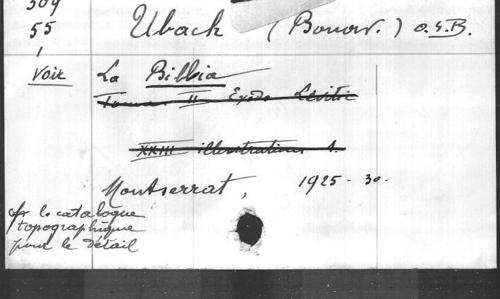 309
55
Ubach (Bonav.) O.S.B.
Voir La Biblia
Tome II Exode Lévitic
XXIII illustrations 1.
Montserrat, 1925-30.
le catalogue
topographique
pour le détail